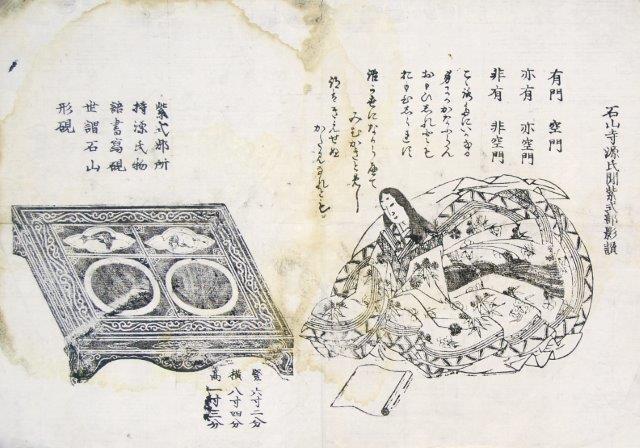 石山寺源氏間紫式部影讃
有門 空門
亦有 亦空門
非有 非空門
こゝろたにいかなる
身にかかなふらん
おもひしれとも
おもひしられす
誰か世になからへて
みむかきとめし
跡はきえせぬ
かたみなれとも
紫式部所
持源氏物
語書寫硯
世謂石山
形硯
竪 六寸二分
横 八寸四分
高 一寸三分